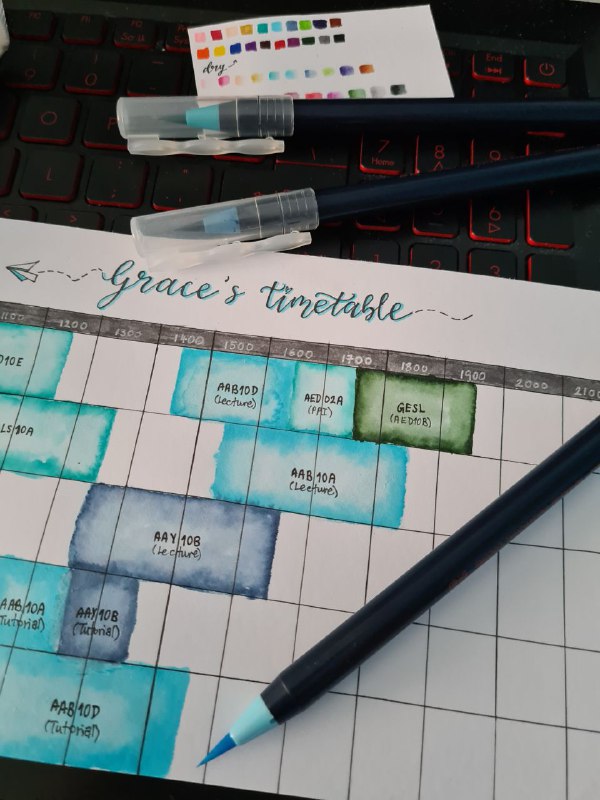 dry
End
7
Home
8
9
6
L
Grace's timetable
1100 1200 1300 1400 1500 1600 1700 1800 1900 2000 2100
AAB10D
(Lecture)
AED 02A
(PPI)
GESL
(AED10B)
AAB 10A
(Lecture)
AAY 10B
(Lecture)
AAB 10A
(Tutorial)
AAY 10B
(Tutorial)
AAB 10D
(Tutorial)